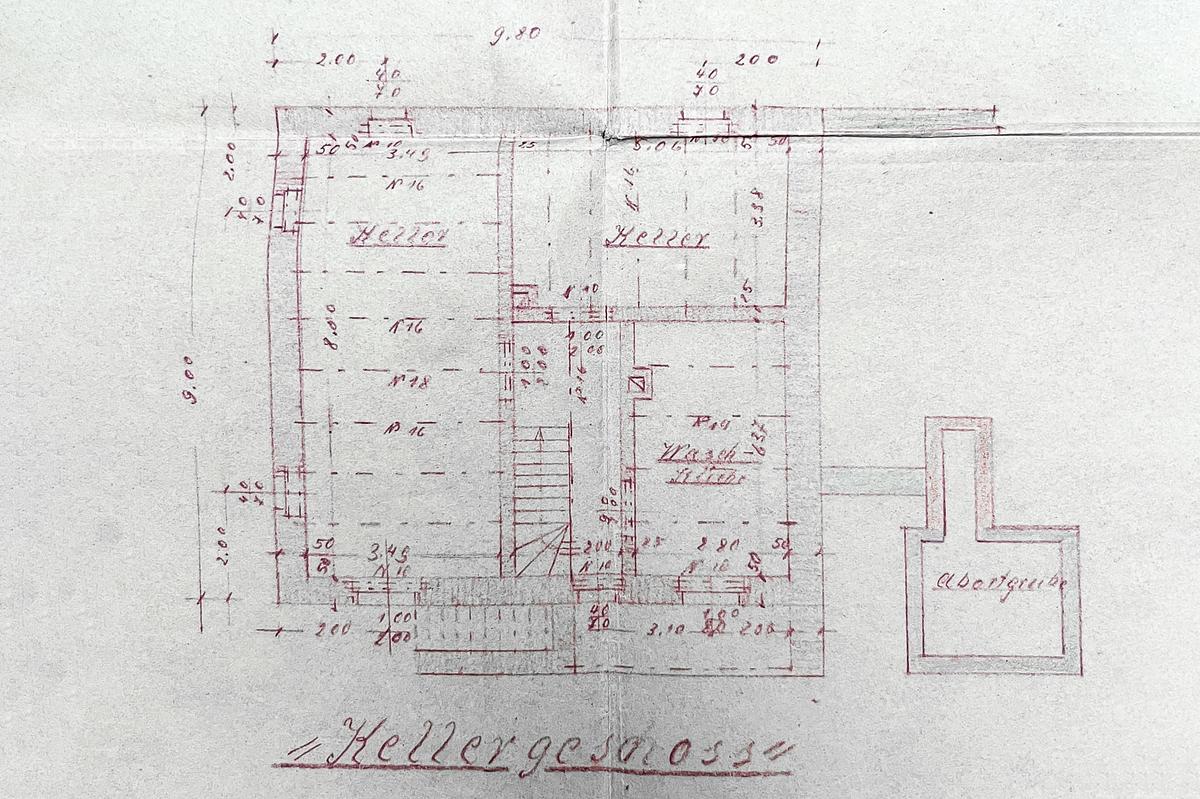 9.80
2.00
200
40
70
40
70
50
50
N 10
3.49
25
5.06
N 10
5
50
2.00
N 16
N 16
3.38
40
70
Keller
Keller
N 10
25
8.00
N 16
1 00
2 00
1 00
2 00
9.00
N 18
N 16
N 16
N 14
6.37
Wasch-
Küche
40
70
2.00
50
50
3.49
N 10
200
N 10
25
2 80
N 10
50
50
Abortgrube
200
1 00
2 00
40
70
3.10
1 00
200
"Kellergeschoss"